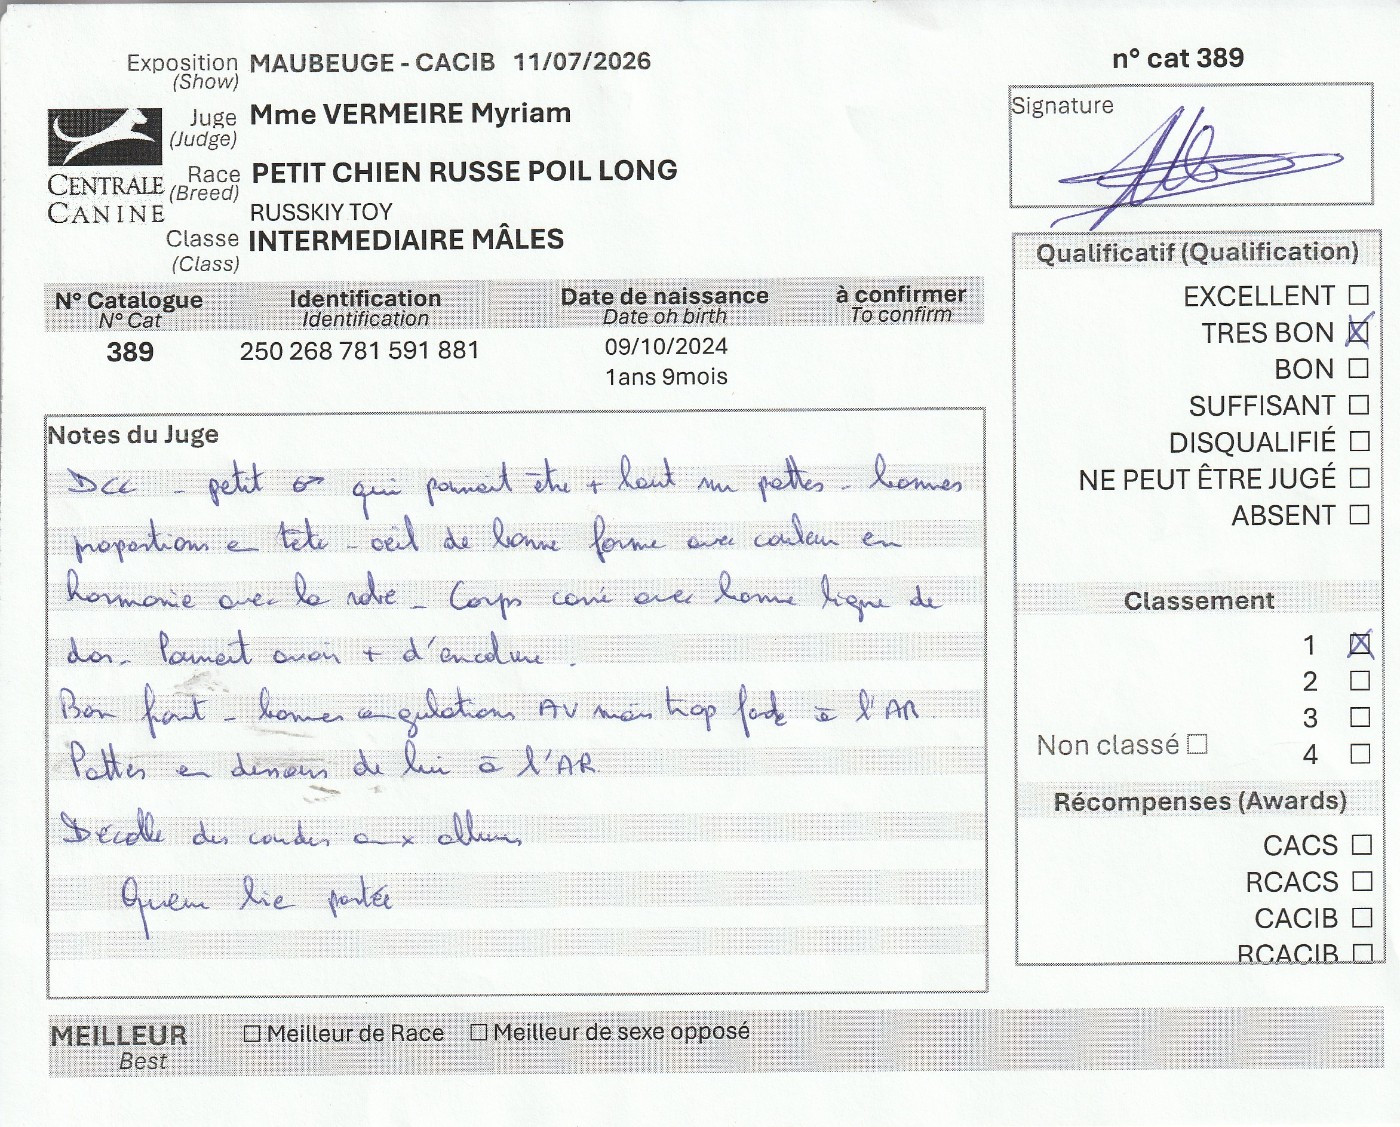 Exposition MAUBEUGE - CACIB 11/07/2026
(Show)
Juge Mme VERMEIRE Myriam
(Judge)
Race PETIT CHIEN RUSSE POIL LONG
(Breed)
RUSSKIY TOY
Classe INTERMEDIAIRE MÂLES
(Class)
CENTRALE
CANINE
n° cat 389
Signature
N° Catalogue Identification Date de naissance à confirmer
N° Cat Identification Date oh birth To confirm
389 250 268 781 591 881 09/10/2024
1ans 9mois
Notes du Juge
DCC - petit ♂ qui pourrait être + haut sur pattes - bonnes
proportions en tête - oeil de bonne forme avec couleur en
harmonie avec la robe - Corps carré avec bonne ligne de
dos - Pourrait avoir + d'encolure.
Bon front - bonnes angulations AV mais trop à l'AR
Pattes en dessous de lui à l'AR.
Décolle des coudes aux allures
Queue bien portée
Qualificatif (Qualification)
EXCELLENT ☐
TRES BON ☒
BON ☐
SUFFISANT ☐
DISQUALIFIÉ ☐
NE PEUT ÊTRE JUGÉ ☐
ABSENT ☐
Classement
1 ☒
2 ☐
3 ☐
Non classé ☐
4 ☐
Récompenses (Awards)
CACS ☐
RCACS ☐
CACIB ☐
RCACIB ☐
MEILLEUR ☐ Meilleur de Race ☐ Meilleur de sexe opposé
Best